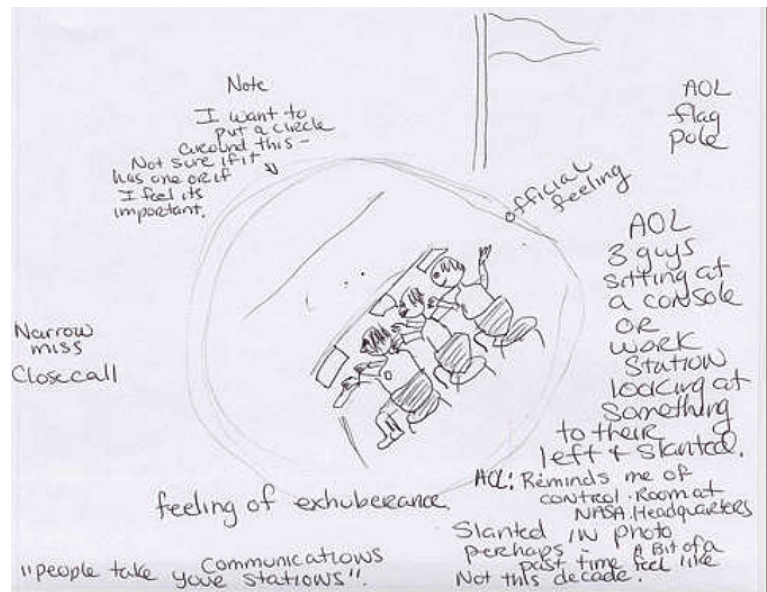 Note
I want to
put a circle
around this -
Not sure if it
has one or if
I feel its
important.
AOL
flag
pole
official
feeling
AOL
3 guys
sitting at
a console
OR
WORK
STATION
looking at
something
to their
left + slanted.
Narrow
miss
Close call
feeling of exhuberance
AOL: Reminds me of
control Room at
NASA Headquarters
Slanted IN photo
perhaps - A Bit of a
past time feel like
Not this decade.
Communications
"people take your stations".